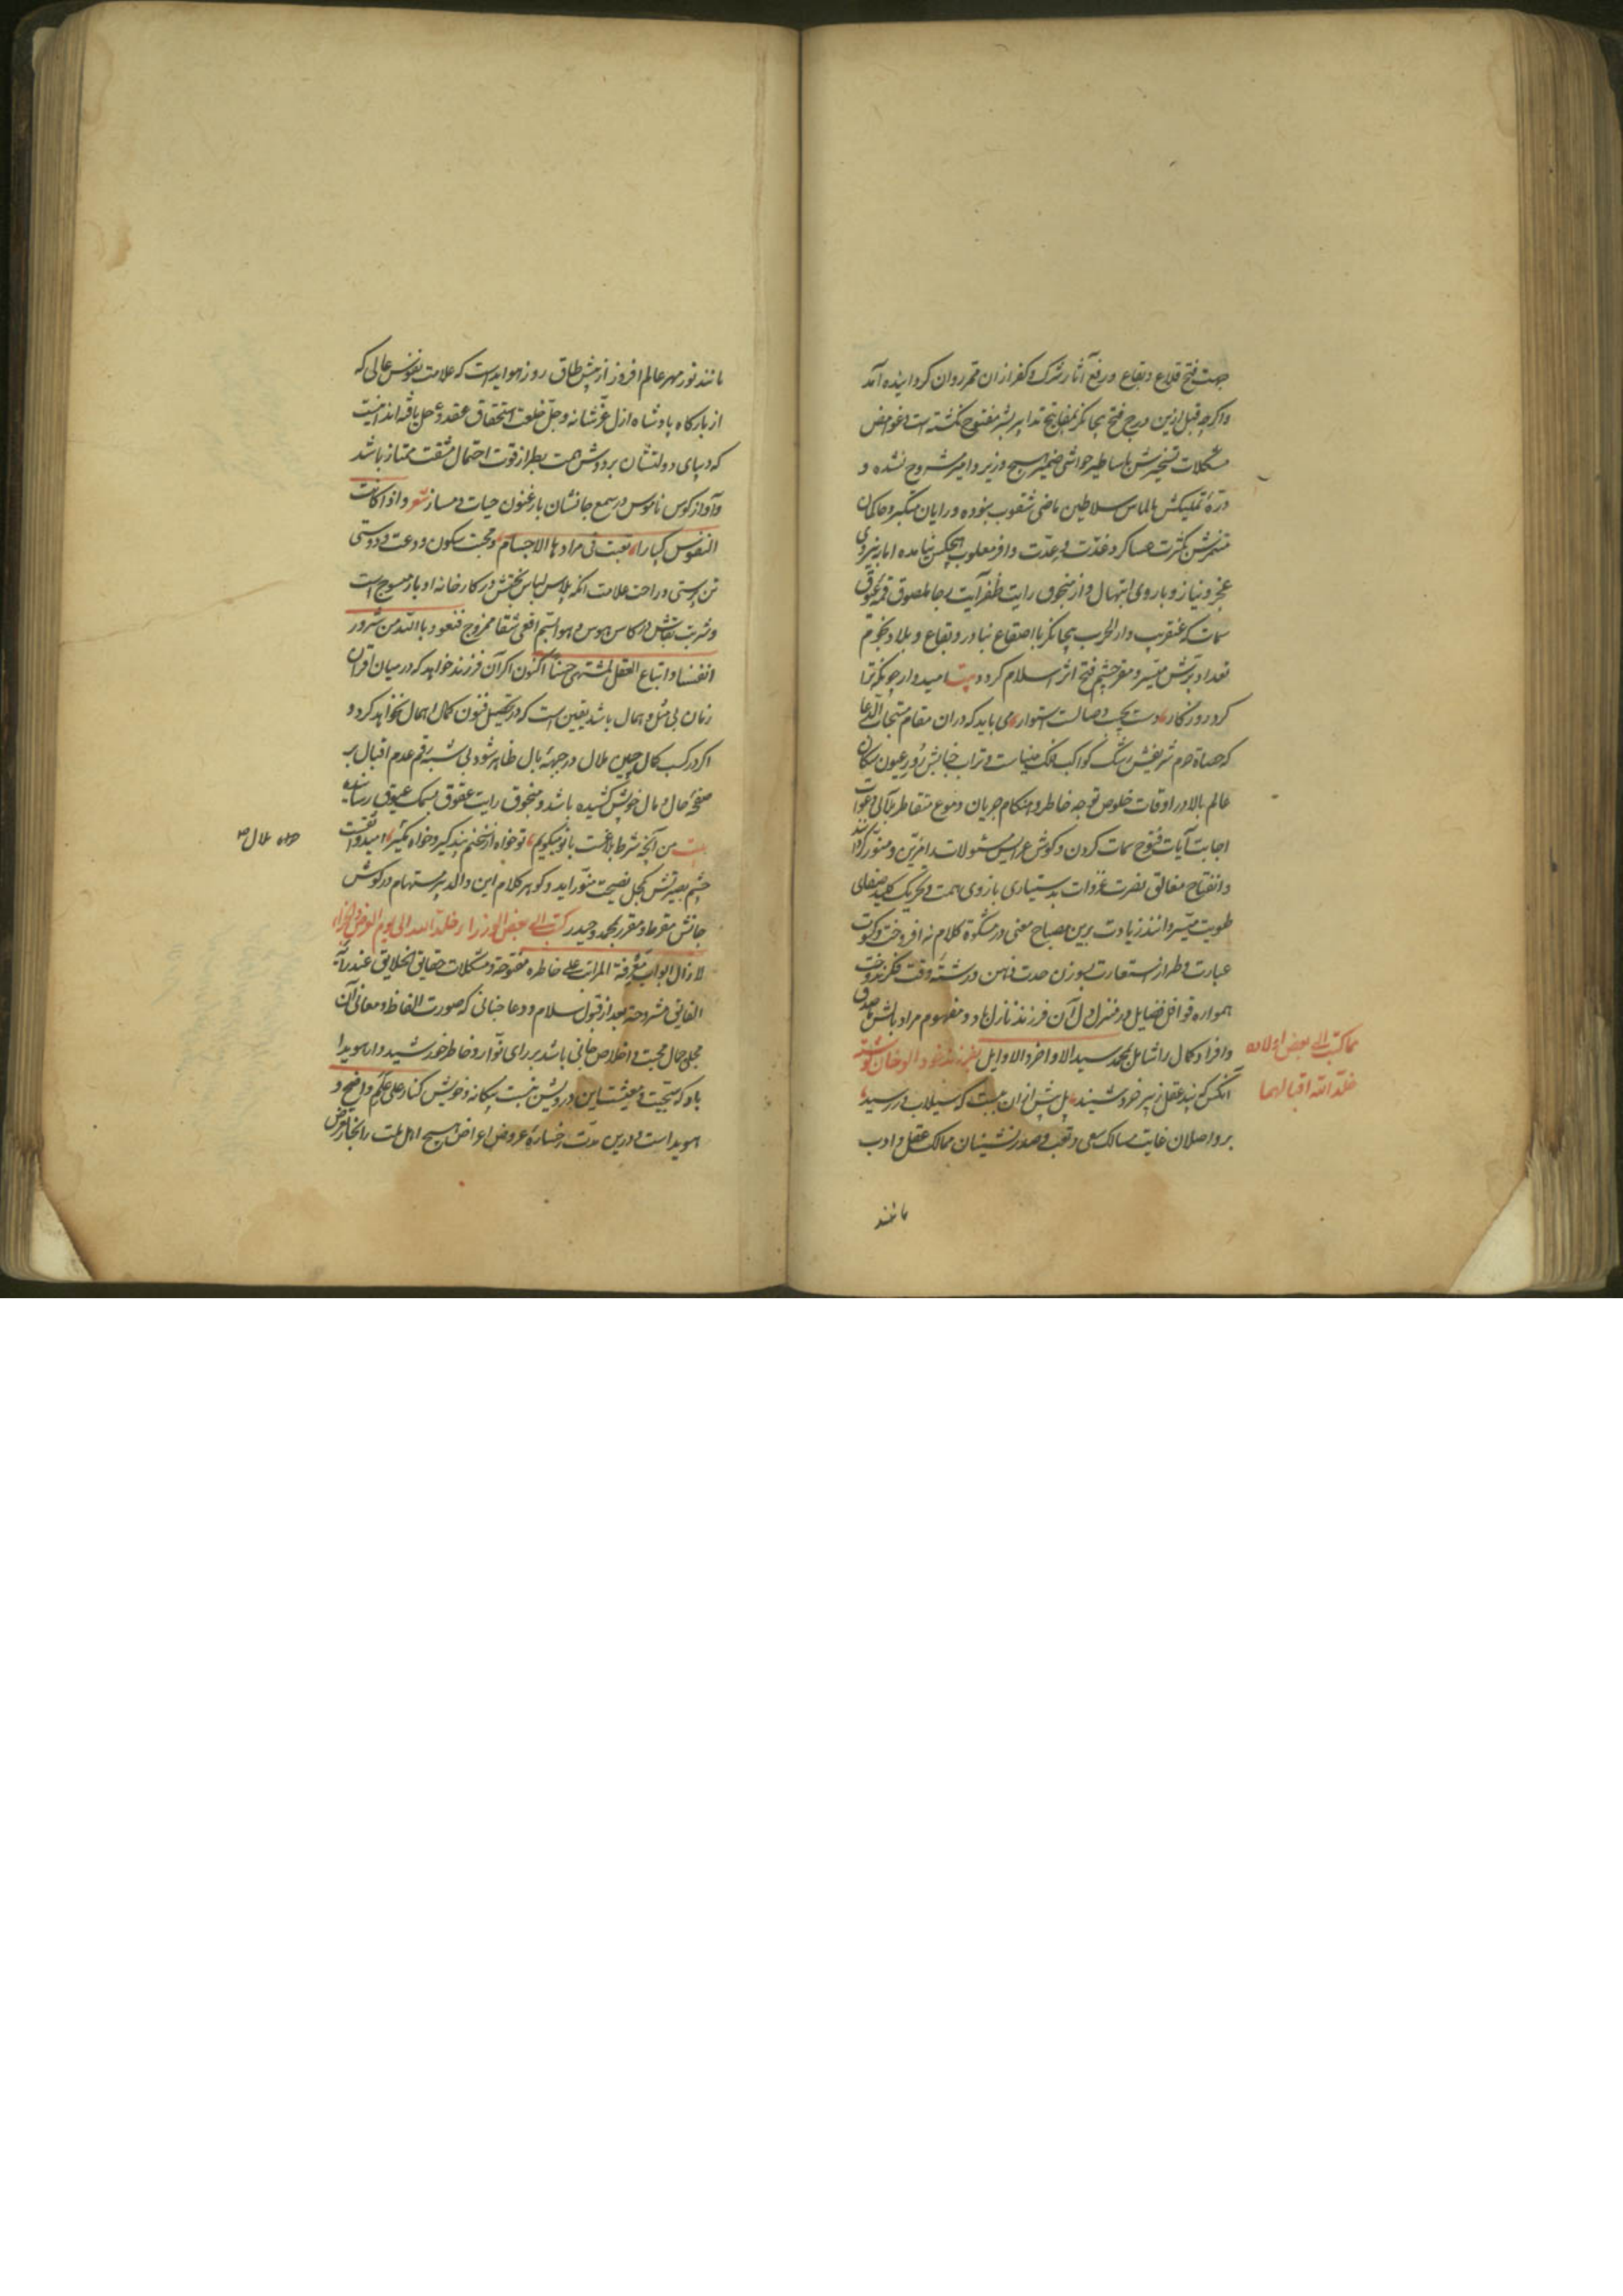 جهت فتح قلاع و بقاع و رفع آثار شرک و کفر ازان مقر روان گردانیده آمد
و اگرچه قبل ازین درج فتح بیجانگر بمفاتیح تدابیر بشر مفتوح نگشته است و غوامض
مشکلات تسخیرش باساطیر حواشی ضمیر هیچ وزیر و امیر مشروح نشده و
درّهٔ تملیکش بالماس سلاطین ماضی مثقوب نبوده و رایان ستمگر و حاکمان
متنمرش بکثرت عساکر و عدّت و عدّت وافر مغلوب هیچکس نیامده اما به نیروی
عجز و نیاز و باروی ابتهال و از منجوق رایت ظفر آیت رجا ملصوق قمهٔ عیوق
سمات که عنقریب دار الحرب بیجانگر با اصقاع بنادر و بقاع و بلاد و نجوم
تعداد برّش میسّر و مقر حشم فتح اثر اسلام گردد بیت امیدوار چو نکه ترا
کرد روزگار دست بچپ وصالت استوار می باید که دران مقام مستجاب الدعا
که حصاة حرم شریفش رشک کواکب فلک میناست و تراب جنابش زور عیون سکان
عالم بالا در اوقات خلوص توجه خاطر و هنگام جریان دموع متقاطر بلآلی دعوات
اجابت آیات فتوح سمات گردن و گوش عرایس مسئولات را مزیّن و منوّر گرداند
و انفتاح مغالق نصرت غزوات بدستیاری بازوی همت و تحریک کلید صفای
طویت میسّر دانند زیادت برین مصباح معنی در مشکوة کلام نه افروخت و کسوت
عبارت و طراز استعارت بسوزن حدت ذهن و رشتهٔ دقت فکر ندوخت
همواره قوافل فضایل در منزل دل آن فرزند نازل باد و مفهوم مراد باتش صدق
و افراد کمال را شامل بمحمد سید الاواخر و الاوایل
آنکس که پند عقل ز پیر خرد شنید پل پیش ازان ببست که سیلاب در رسید
بر واصلان غایت مسالک سعی و تعب و صدرنشینان ممالک عقل و ادب
مانند
مما کتب الی بعض اولاده
خلّد الله اقبالهما
مانند نور مهر عالم افروز از پیش طاق روز هویداست که علامت نفوس عالی که
از بارگاه پادشاه ازل عزّ شانه و جلّ خلعت استحقاق عقد و حل یافته اند اینست
که دیبای دولتشان بر دوش همت بطراز قوت احتمال مشقت ممتاز باشد
و آواز کوس ناموس در سمع جانشان با ارغنون حیات دمساز شعر و اذا کانت
النفوس کبارا تعبت فی مرادها الاجسام و محبت سکون و دعت و دوستی
تن پرستی و راحت علامت آنکه پلاس لباس بختش در کارخانه ادبار منسوج است
و شربت بقایش در کاس هوس و هوا بسم افعی شقا ممزوج فنعوذ بالله من شرور
انفسنا و اتباع العقل لمشتهی حسّنا اکنون اگر آن فرزند خواهد که در میان اقران
زمان بی مثل و همال باشد یقین است که در تحصیل فنون کمال اهمال نخواهد کرد و
اگر در کسب کمال چین ملال در جبههٔ بال ظاهر شود بی شبهه رقم عدم اقبال بر
صفحهٔ حال و مال خویش کشیده باشد و منجوق رایت عقوق بسمک عیوق رسانیده
بیت من آنچه شرط بلاغست با تو میگویم تو خواه از سخنم پند گیر و خواه ملال امید واثقست
چشم بصیرتش بکحل نصیحت منوّر آید و گوهر کلام این والد پر مستهام در گوش
جانش مقرط و مقرر بمحمد و حیدر کتب الی بعض الوزراء خلّد الله الی یوم العرض و الجزاء
لا زال ابواب معرفة المراتب علی خاطره مفتوحة و مشکلات حقایق الخلایق عند رأیه
الفایق مشروحة بعد از قبول سلام و دعا جنابی که صورت الفاظ و معانی آن
مجلی جمال محبت و اخلاص جانی باشد بر رای انوار و خاطر خورشید وار هویدا
باد که سجیت و معیشت این درویش نسبت بیگانه و خویش کنار علی علم واضح و
هویداست و درین مدّت رخسارهٔ عروض اعراض هیچ اهل ملت را بخار تعرض